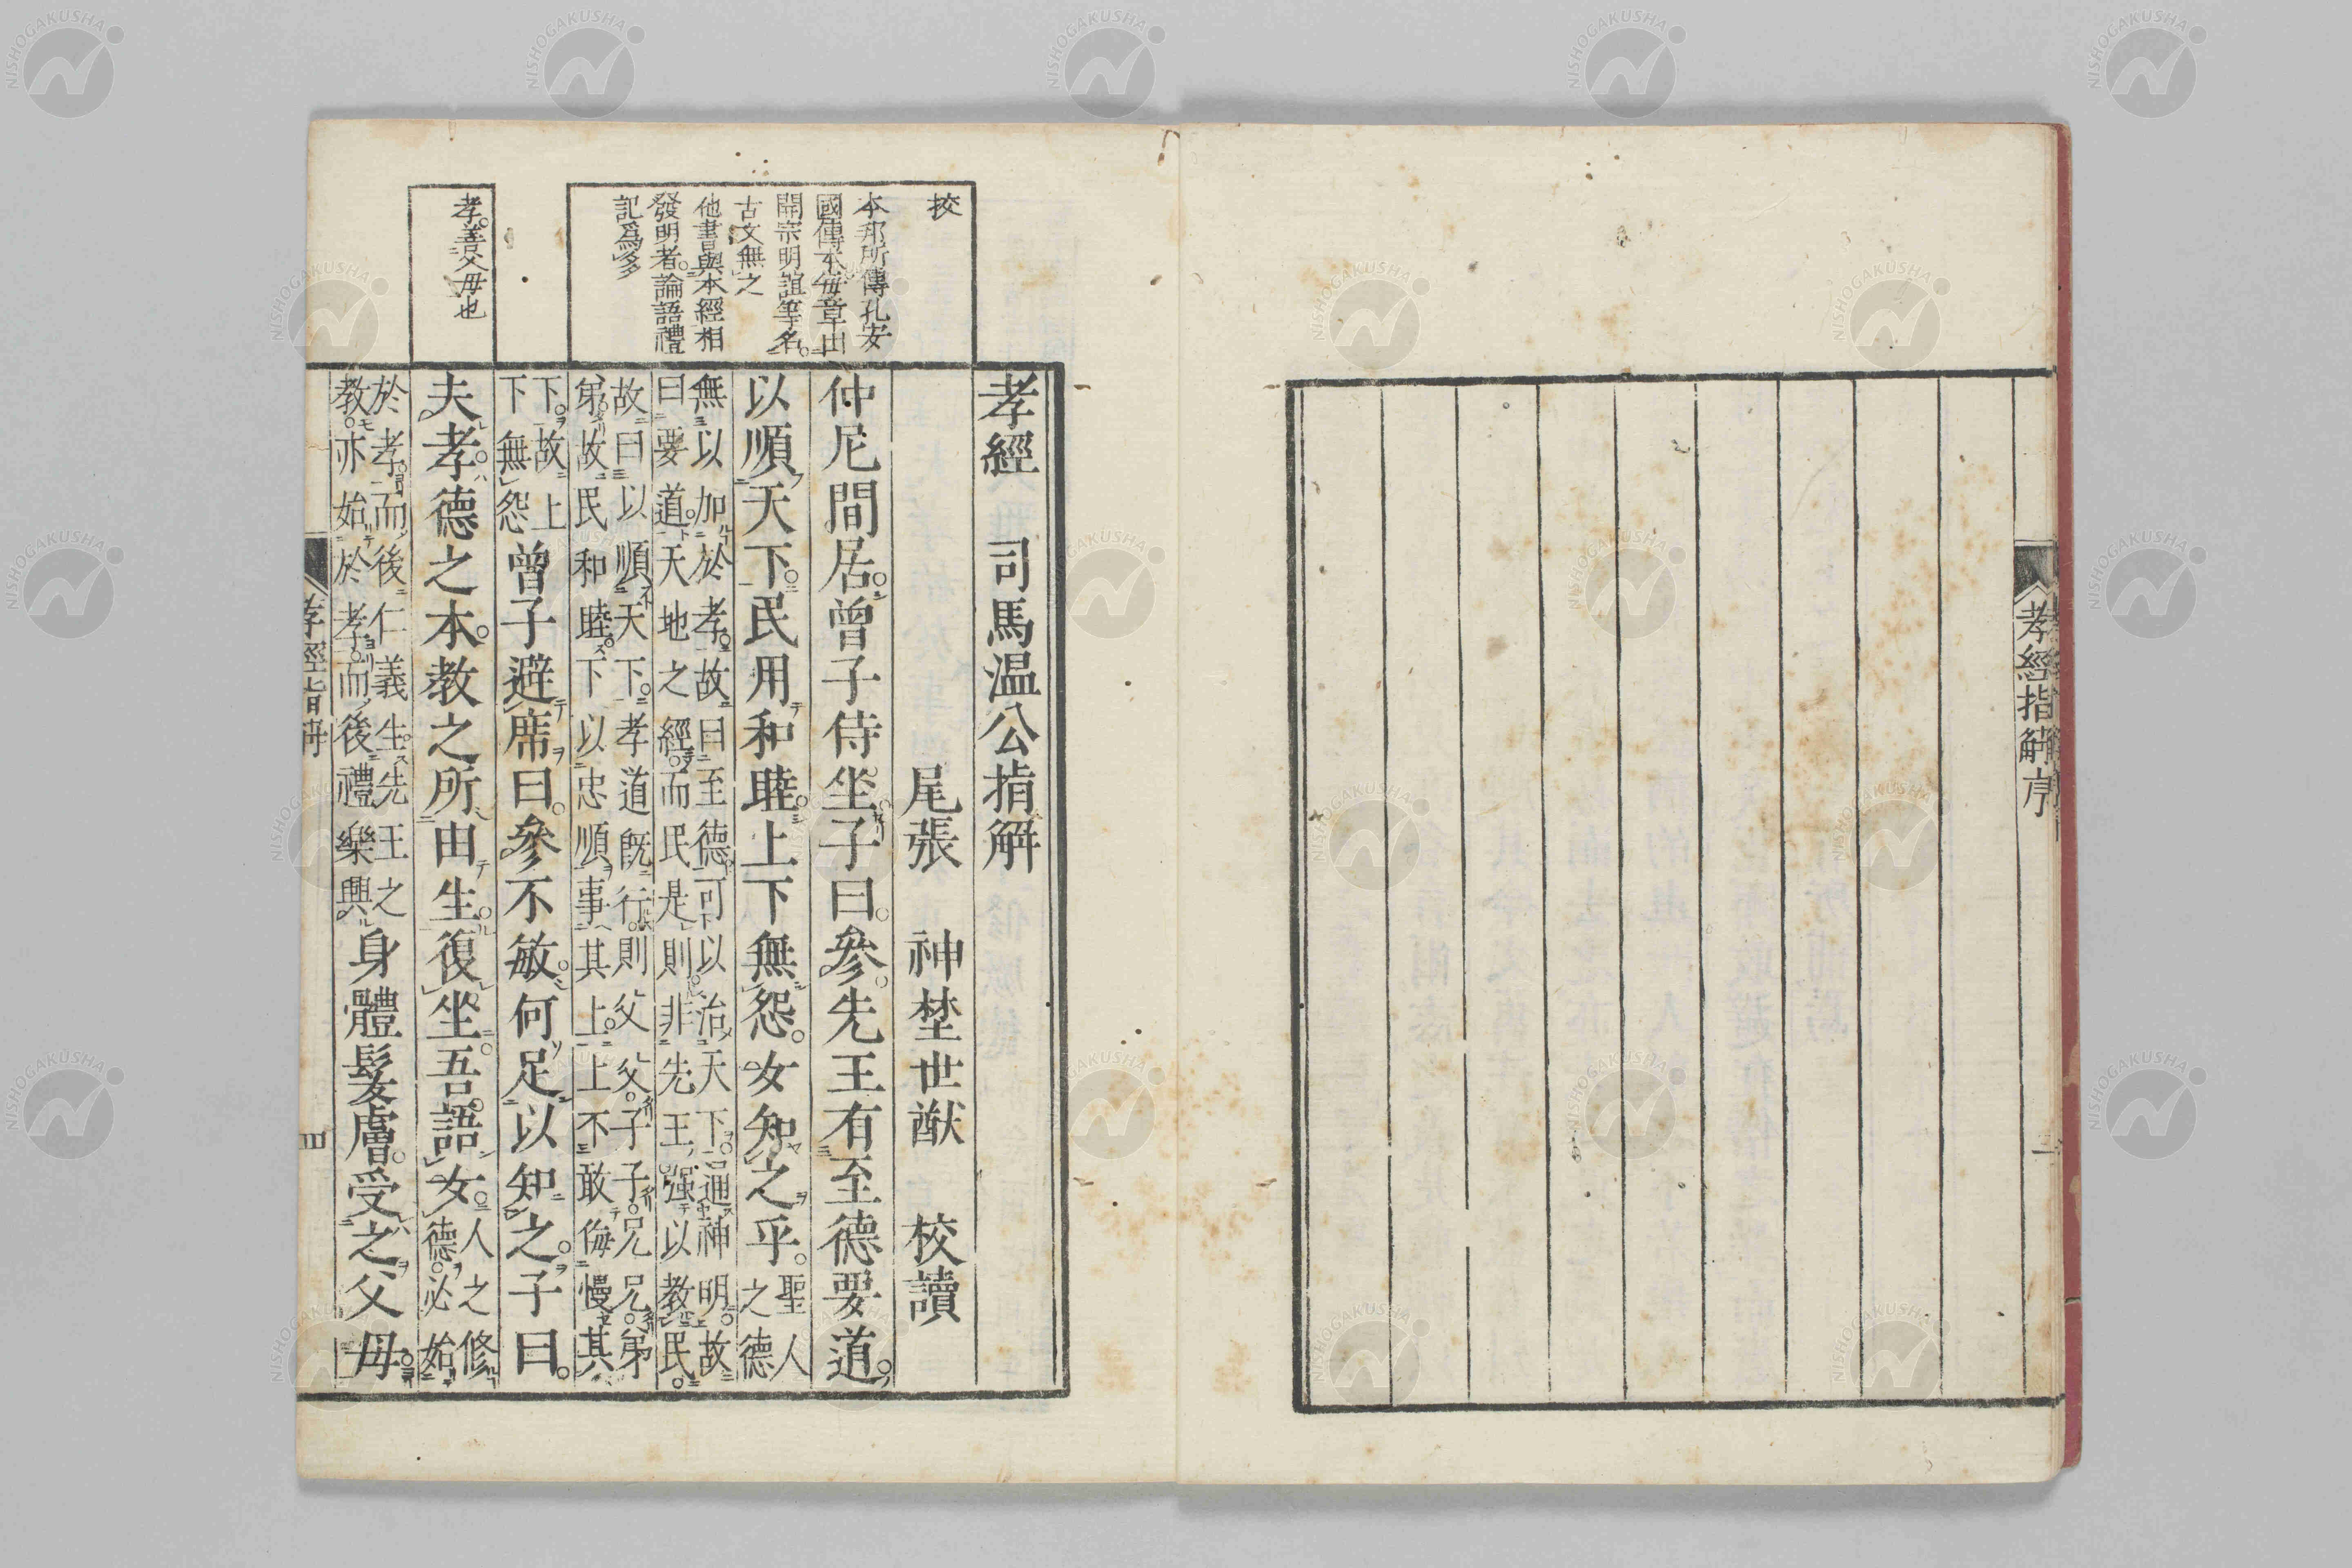 孝經指解序
三
挍
本邦所傳孔安
國傳本每章出
開宗明誼等名。
古文無之
他書與本經相
發明者。論語禮
記爲多
孝。善父母也
孝經 司馬温公指解
尾張 神埜世猷 校讀
仲尼間居。曾子侍坐。子曰。參。先王有至德要道。
以順天下。民用和睦。上下無怨。女知之乎。聖人
之德
無以加於孝。故曰至德。可以治天下。通神明。故
曰要道。天地之經。而民是則。非先王。强以教民。
故曰以順天下。孝道既行。則父父。子子。兄兄。弟
弟。故民和睦。下以忠順事其上。上不敢侮慢其
下。故上
下無怨
曾子避席曰。參不敏。何足以知之。子曰。
夫孝。德之本。教之所由生。復坐。吾語女。人之修
德。必始
於孝。而後仁義生。先王之
教。亦始於孝。而後禮樂興
身體髮膚。受之父母。
孝經指解
四